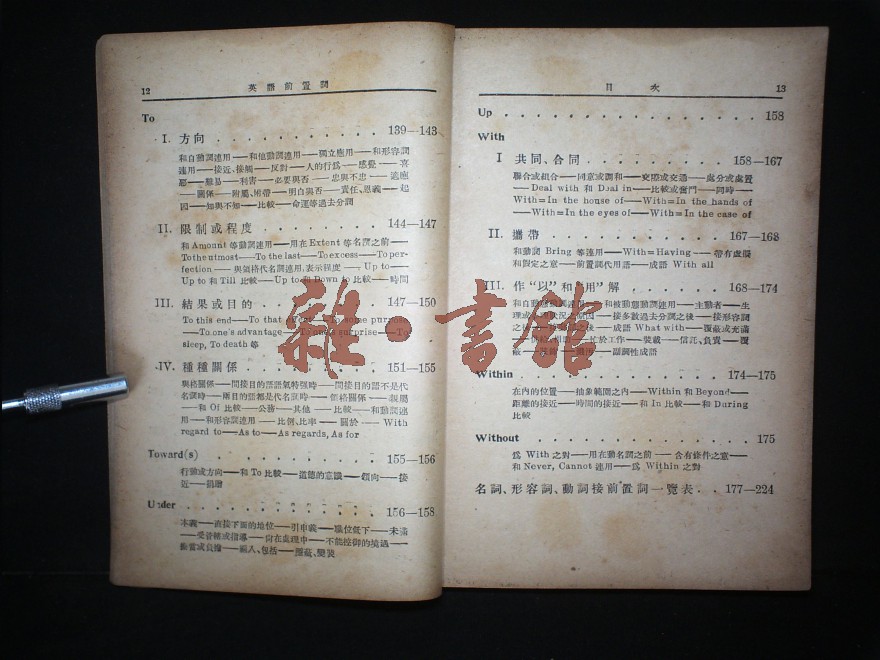 12 英語前置詞
To
I. 方向 . . . . . . . . . . . 139—143
和自動詞連用——和他動詞連用——獨立應用——和形容詞
連用——接近、接觸——反對——人的行為——感覺——喜
惡——難易——利害——必要與否——忠與不忠——適應
——關係——附屬、附帶——明白與否——責任、恩義——起
因——知與不知——比較——命運等過去分詞
II. 限制或程度 . . . . . . . . 144—147
和 Amount 等動詞連用——用在 Extent 等名詞之前——
To the utmost——To the last——To excess——To per-
fection——與領格代名詞連用,表示程度——Up to——
Up to 和 Till 比較——Up to 和 Down to 比較——時間
III. 結果或目的 . . . . . . . . 147—150
To this end——To that effect——To some purpose
——To one's advantage——To one's surprise——To
sleep, To death 等
IV. 種種關係 . . . . . . . . . 151—155
與格關係——間接目的語語氣特強時——間接目的語不是代
名詞時——兩目的語都是代名詞時——價格關係——親屬
——和 Of 比較——公務——其他——比較——和動詞連
用——和形容詞連用——比例、比率——關於——With
regard to——As to——As regards, As for
Toward(s) . . . . . . . . . . . 155—156
行動或方向——和 To 比較——道德的意識——傾向——接
近——捐贈
Under . . . . . . . . . . . . 156—158
本義——直接下面的地位——引申義——職位低下——未滿
——受管轄或指導——尚在處理中——不能控御的境遇——
——編入、包括——覆蔽、變裝
目次 13
Up . . . . . . . . . . . . . . 158
With
I 共同、合同 . . . . . . . . . 158—167
聯合或組合——同意或調和——交際或交通——處分或處置
——Deal with 和 Deal in——比較或奮鬥——同時——
With=In the house of——With=In the hands of
——With=In the eyes of——With=In the case of
II. 攜帶 . . . . . . . . . . . 167—168
和動詞 Bring 等連用——With=Having——帶有虛擬
和假定之意——前置詞代用語——成語 With all
III. 作“以”和“用”解 . . . . . . . 168—174
和自動詞連用——和被動態動詞連用——主動者——生
理或——接多數過去分詞之後——接形容詞
之後——之後——成語 What with——覆蔽或充滿
——忙於工作——裝載——信託、負責——覆
蔽——副詞性成語
Within . . . . . . . . . . . . 174—175
在內的位置——抽象範圍之內——Within 和 Beyond——
距離的接近——時間的接近——和 In 比較——和 During
比較
Without . . . . . . . . . . . . 175
為 With 之對——用在動名詞之前——含有條件之意——
和 Never, Cannot 連用——為 Within 之對
名詞、形容詞、動詞接前置詞一覽表 . . 177—224
雜·書館